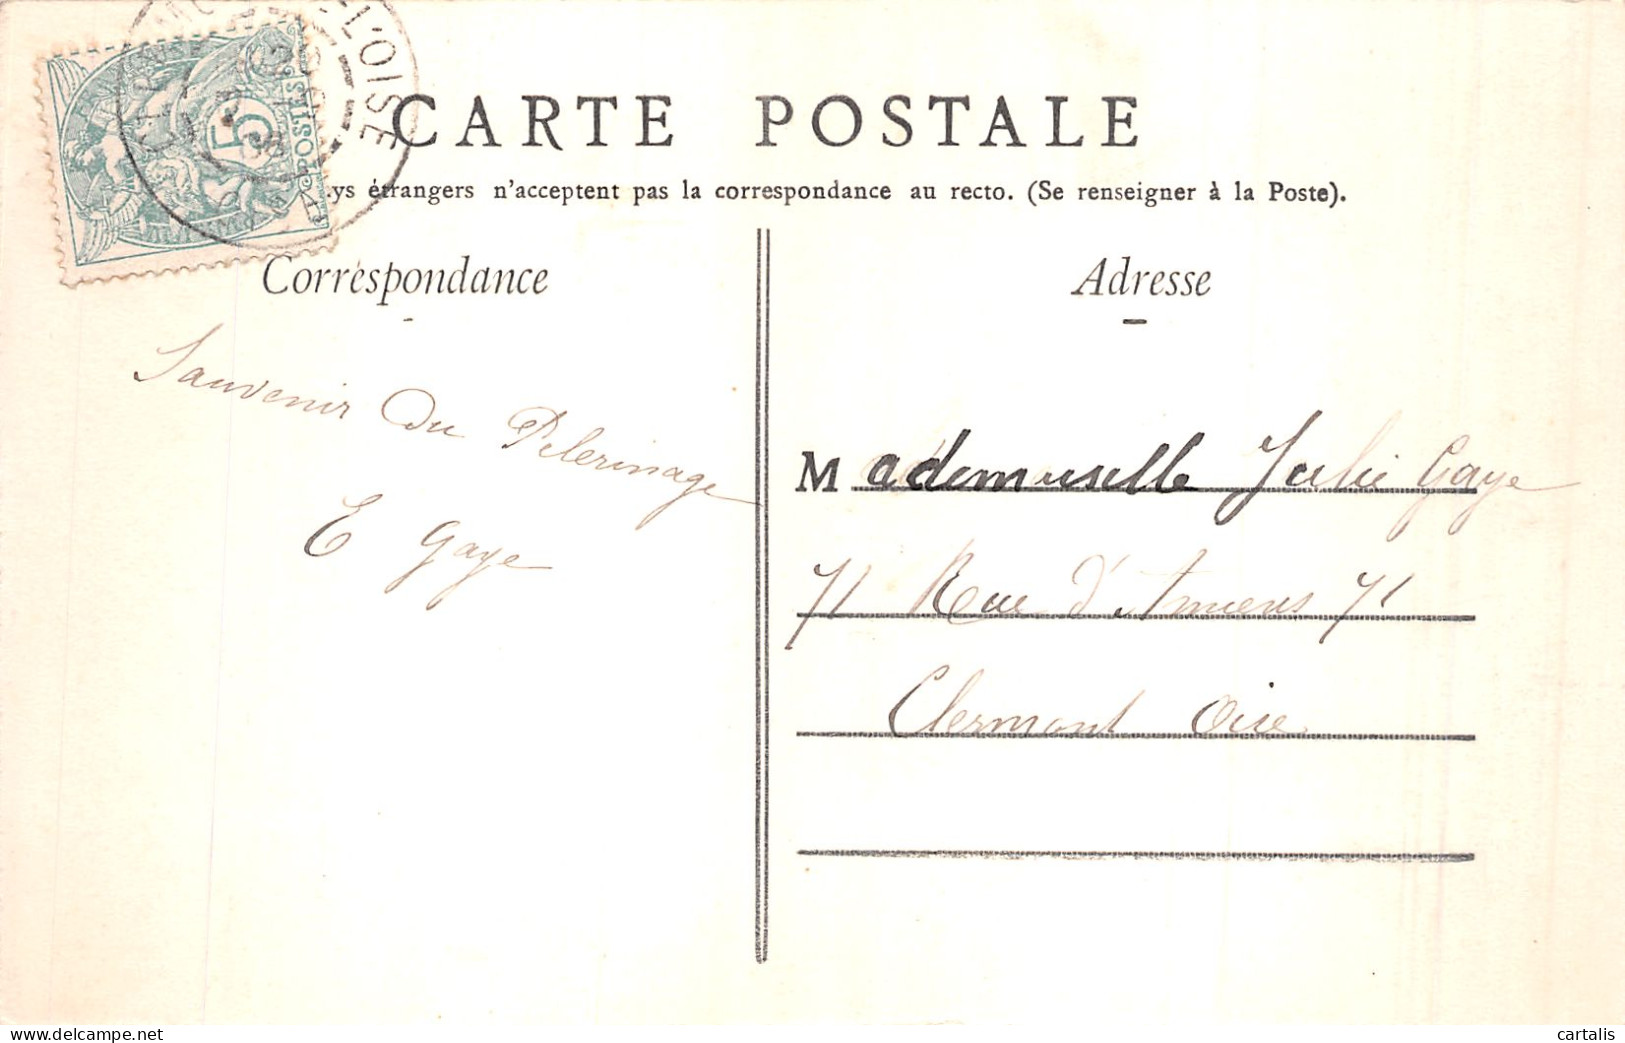 CARTE POSTALE
ys étrangers n'acceptent pas la correspondance au recto. (Se renseigner à la Poste).
L'OISE
5
POSTES
Correspondance
Adresse
Souvenir Du Pelerinage
E Gaye
Mademuselle Julie Gaye
71 Rue d'Amiens 71
Clermont Oise
delcampe.net
cartalis